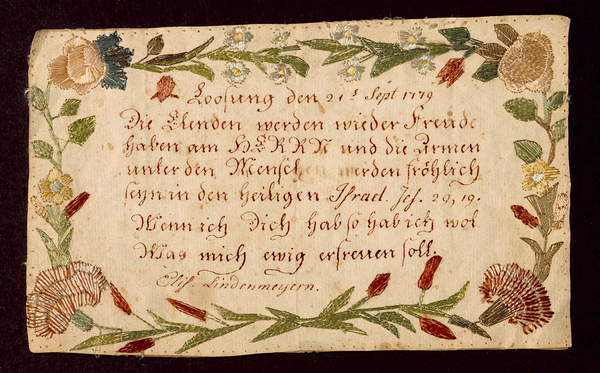 Loosung den 21t Sept 1779
Die Elenden werden wieder Freude
haben am HERRN und die Armen
unter den Menschen werden fröhlich
seyn in den heiligen Israel. Jes. 29, 19.
Wenn ich Dich hab so hab ich wol
Was mich ewig erfreuen soll.
Elis Lindenmeyern.